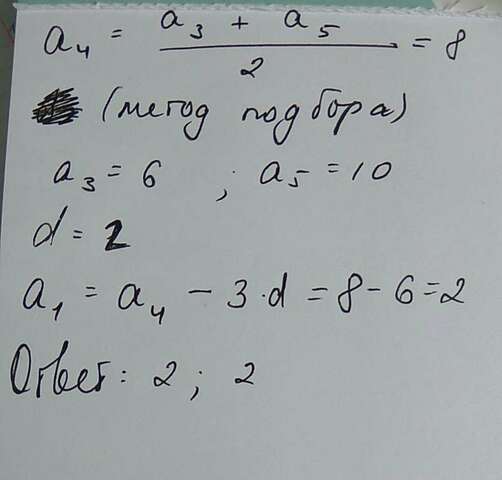 a₄ = (a₃ + a₅) / 2 = 8
(метод подбора)
a₃ = 6 ; a₅ = 10
d = 2
a₁ = a₄ − 3·d = 8 − 6 = 2
Ответ: 2 ; 2